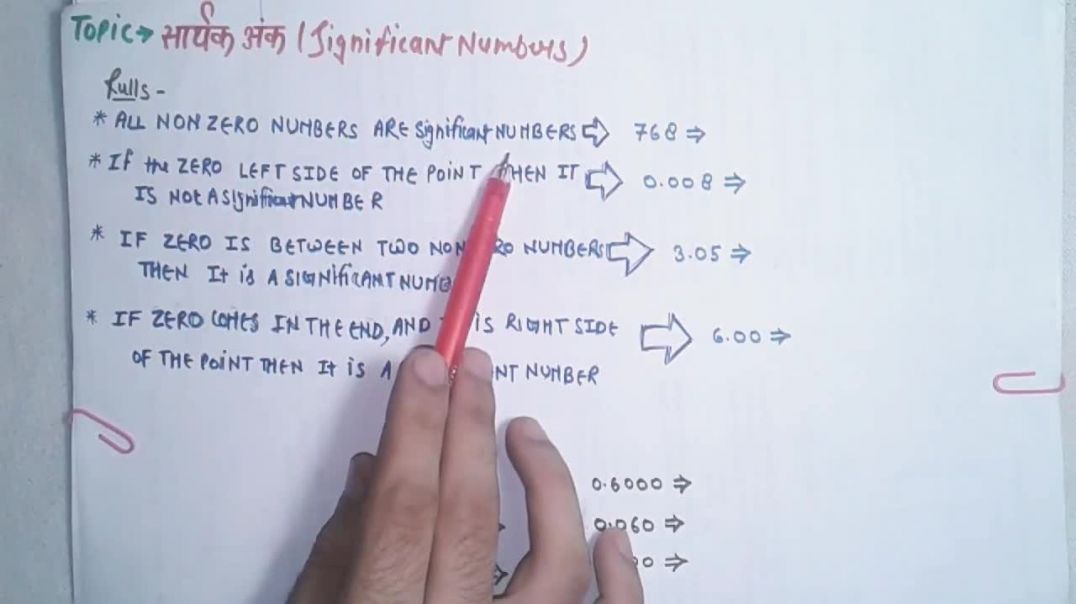 Topic→ सार्थक अंक (Significant Numbers)
Rulls -
* ALL NON ZERO NUMBERS ARE Significant NUMBERS ⇨ 768 ⇒
* If the ZERO LEFT SIDE OF THE POINT THEN IT ⇨ 0.008 ⇒
IS NOt A Significant NUMBER
* IF ZERO IS BETWEEN TWO NON NUMBERS ⇨ 3.05 ⇒
THEN It is A SIGNIfiCANT
* IF ZERO COMES IN THE END, AND IS RIGHT SIDE ⇨ 6.00 ⇒
OF THE POINT THEN It is A NUMBER
0.6000 ⇒
0.060 ⇒
⇒